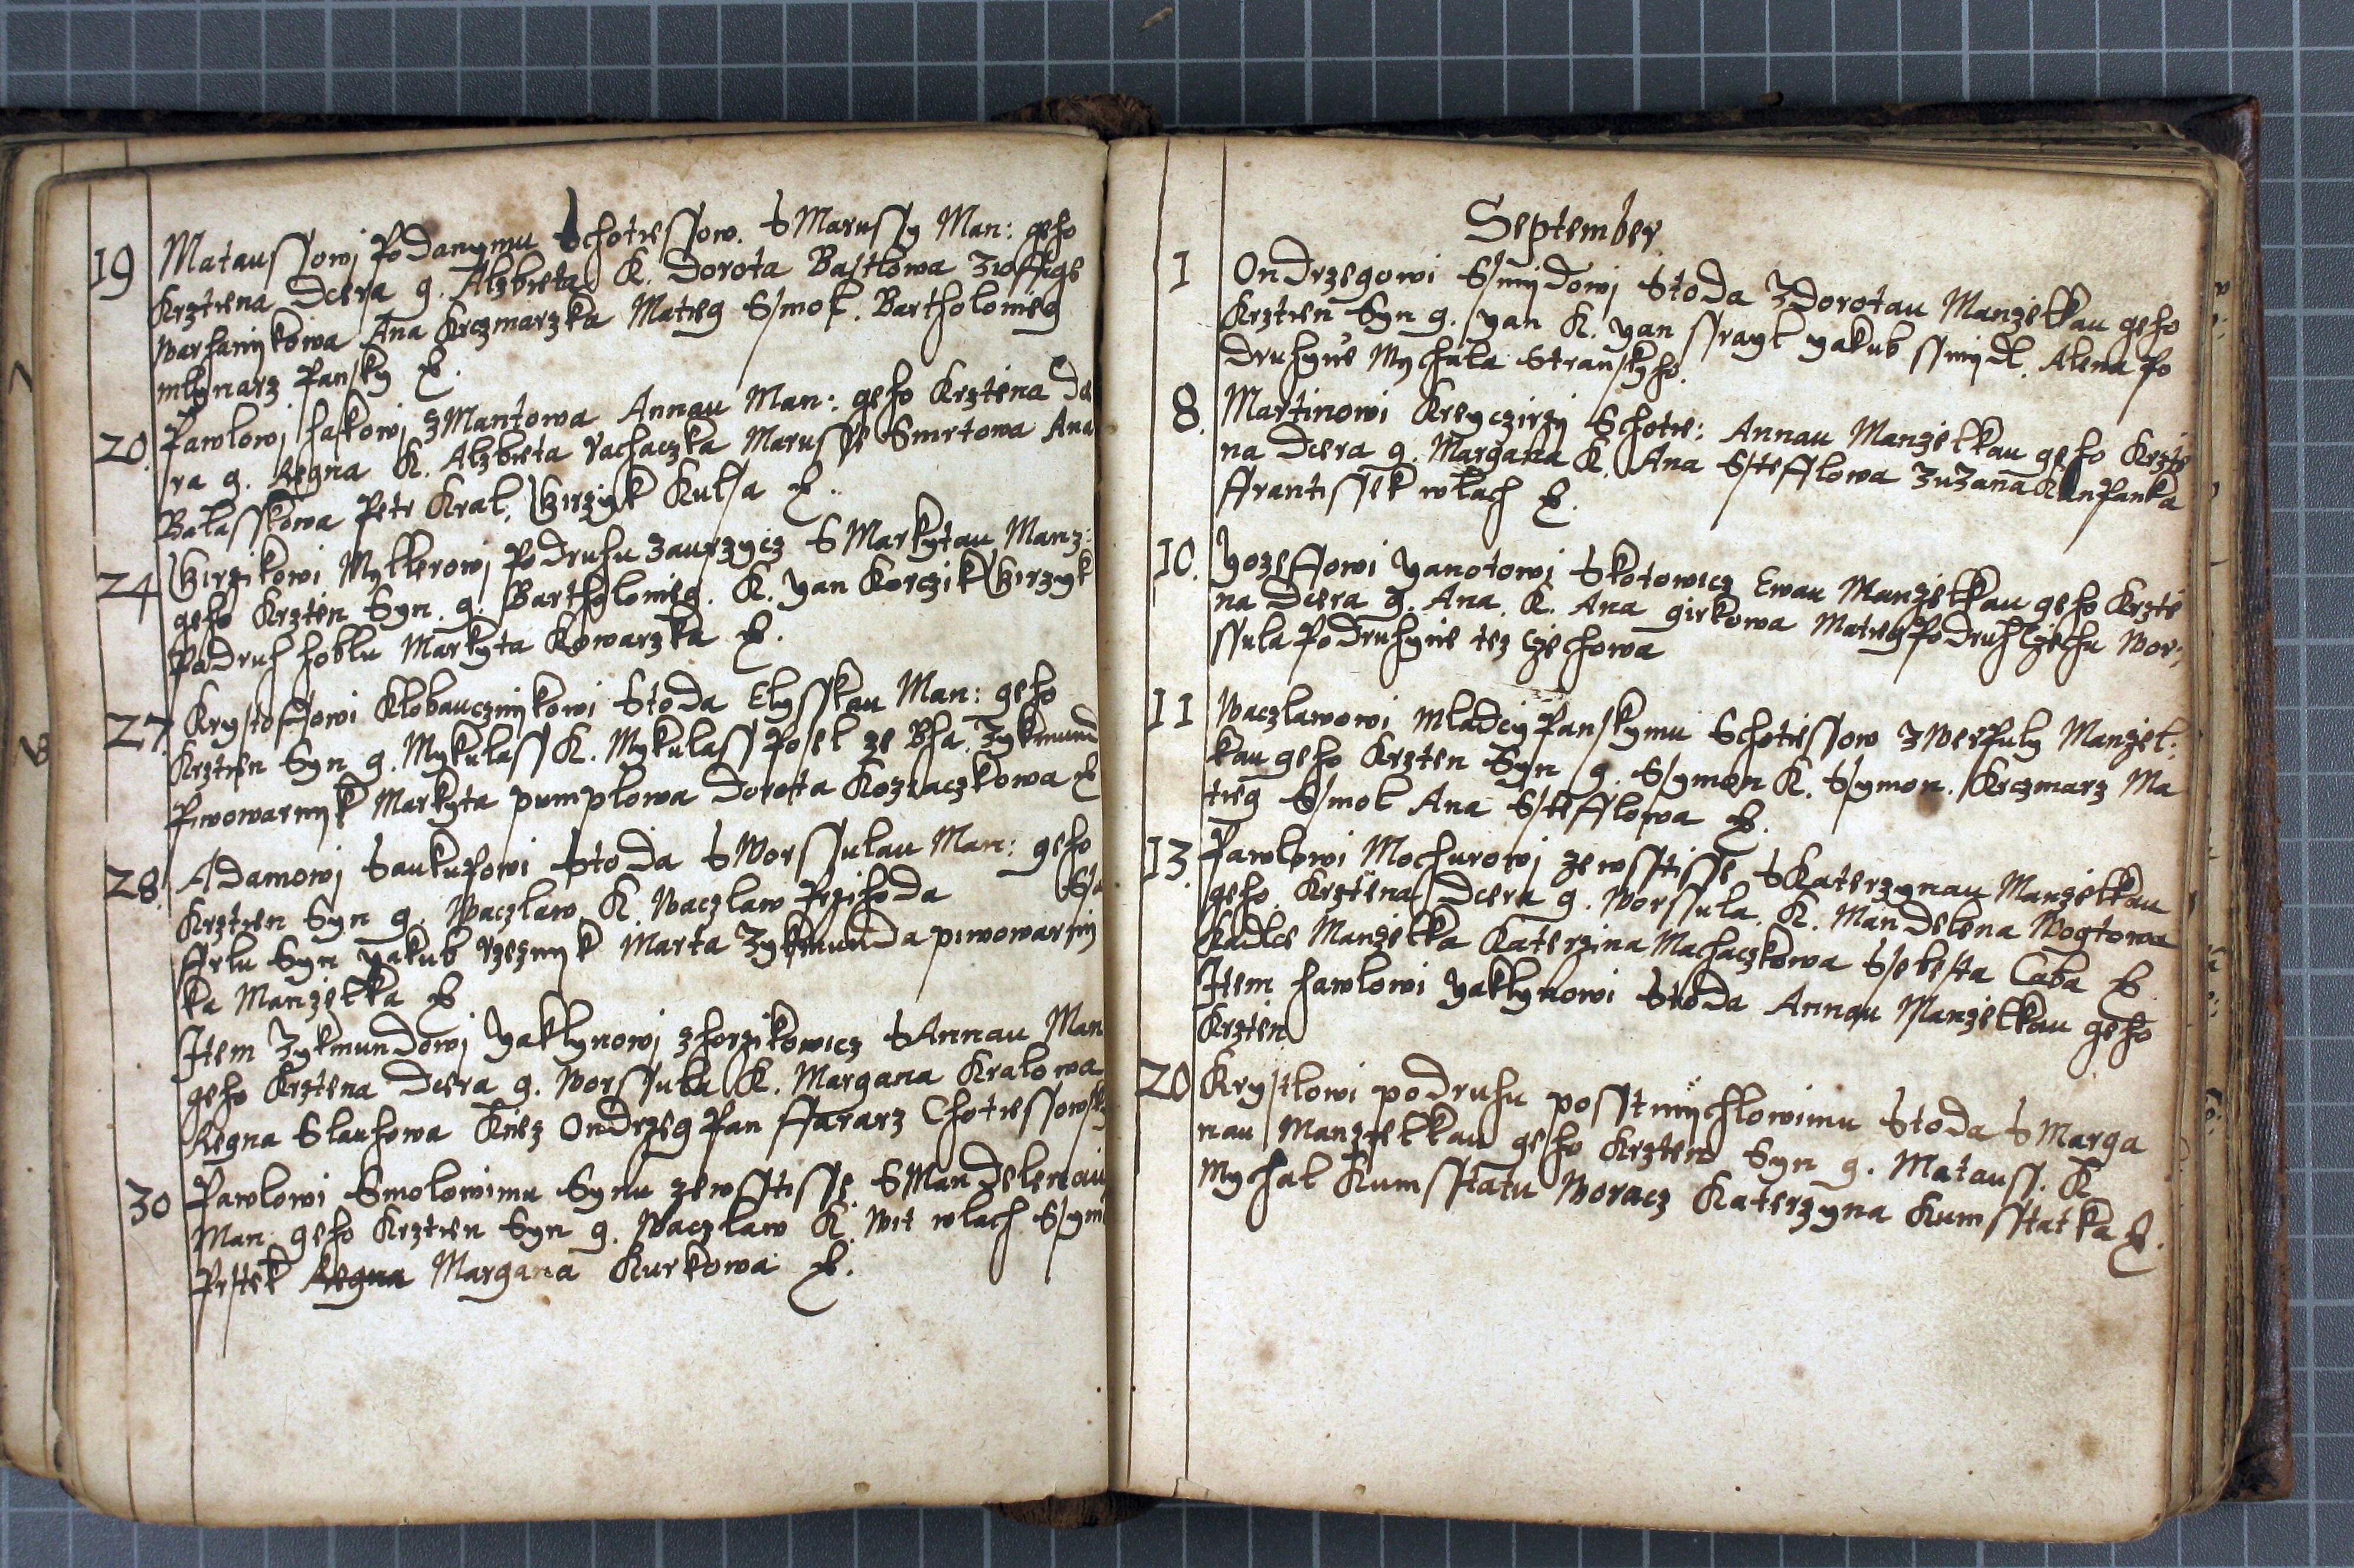 19 Mataussowj Podanymu Schotiessow. S Marussy Man: geho
Krztiena Dcera g. Alzbieta K. Dorota Bastlowa Zioffige
Warhanykowa Ana Krczmarzka Matieg Smol. Bartholomieg
mlynarz Pansky
20. Pawlowj Haskowj z Mantowa Annau Man: geho Krztiena Dc
ra g. Regina K. Alzbieta Rachaczka Marusse Smrtowa Ana
Balasskowa Petr Kral, Girzyk Kulsa
24 Girzikowi Mylkerowj Podruhu Zaurzycz S Markytau Manz:
geho Krztien Syn. g. Bartholomieg. K. Yan Korczik Girzyk
Podruh hoblu Markyta Kowarzka
27 Krystoffowi Klobaucznykowi Stoda Elysskau Man: geho
Krztien Syn g. Mykulass K. Mykulass Posel ze Bha. Zykmund
Piwowarnyk Markyta pumplowa Dorotta Kozlaczkowa
28. Adamowj Saukupowi Stoda S Worssulau Man: geho
Krztien Syn g. Waczlaw K. Waczlaw Przihoda
ffrlu Syn Yakub Rzeznyk Marta Zykmunda piwowarny
ka Manzelka
Item Zykmundowj Yaklynowj z horzikowicz S Annau Man
geho Krztena Dcera g. Worssula K. Margana Kralowa
Regna Slauhowa Kniez Ondrzeg Pan ffararz Chotiessowsky
30 Pawlowi Smolowimu Synu ze wsstisse S Mandelenau
Man. geho Krztien Syn g. Waczlaw K. Wit wlach Sym
Prstek Regna Margana Kurkowa
September
1 Ondrzegowi Smydowj Stoda Z Dorotau Manzelkau geho
Krztien Syn g. Yan K. Yan ssrayl Yakub ssmydl. Alena Po
druhynie Mychala Stranskyho.
8. Martinowi Kreyczirzy Schotie: Annau Manzelkau geho Krztie
na Dcera g. Margana K. Ana Stefflowa Zuzana Kanpanka
ffrantissek wlach
10. Yozeffowi Yanotowi Skotowicz Ewau Manzelkau geho Krztie
na Dcera g. Ana. K. Ana girkowa Matieg Podruh Czechu Wor:
ssula Podruhynie tez Czechowa
11 Waczlawowi Mladcy Panskymu Schotiessow Z Werpuly Manzel:
kau geho Krzten Syn g. Symon K. Symon. Krczmarz Ma
tieg Smol Ana Stefflowa
13. Pawlowi Mochurowj ze wsstisse S Katerzynau Manzelkau
geho. Krztiena Dcera g. Worssula. K. Mandelena Wogtowa
Kadlce Manzelka Katerzina Machaczkowa Sebesta Caba
Item hawlowi Yaklynowi Stoda Annau Manzelkau geho
Krztien
20 Krystlowi podruhu posstmychlowimu Stoda S Marga
nau Manzielkau geho Krztien Syn g. Matauss. K
Mychal Kumsstatu Woracz Katerzyna Kumsstatka